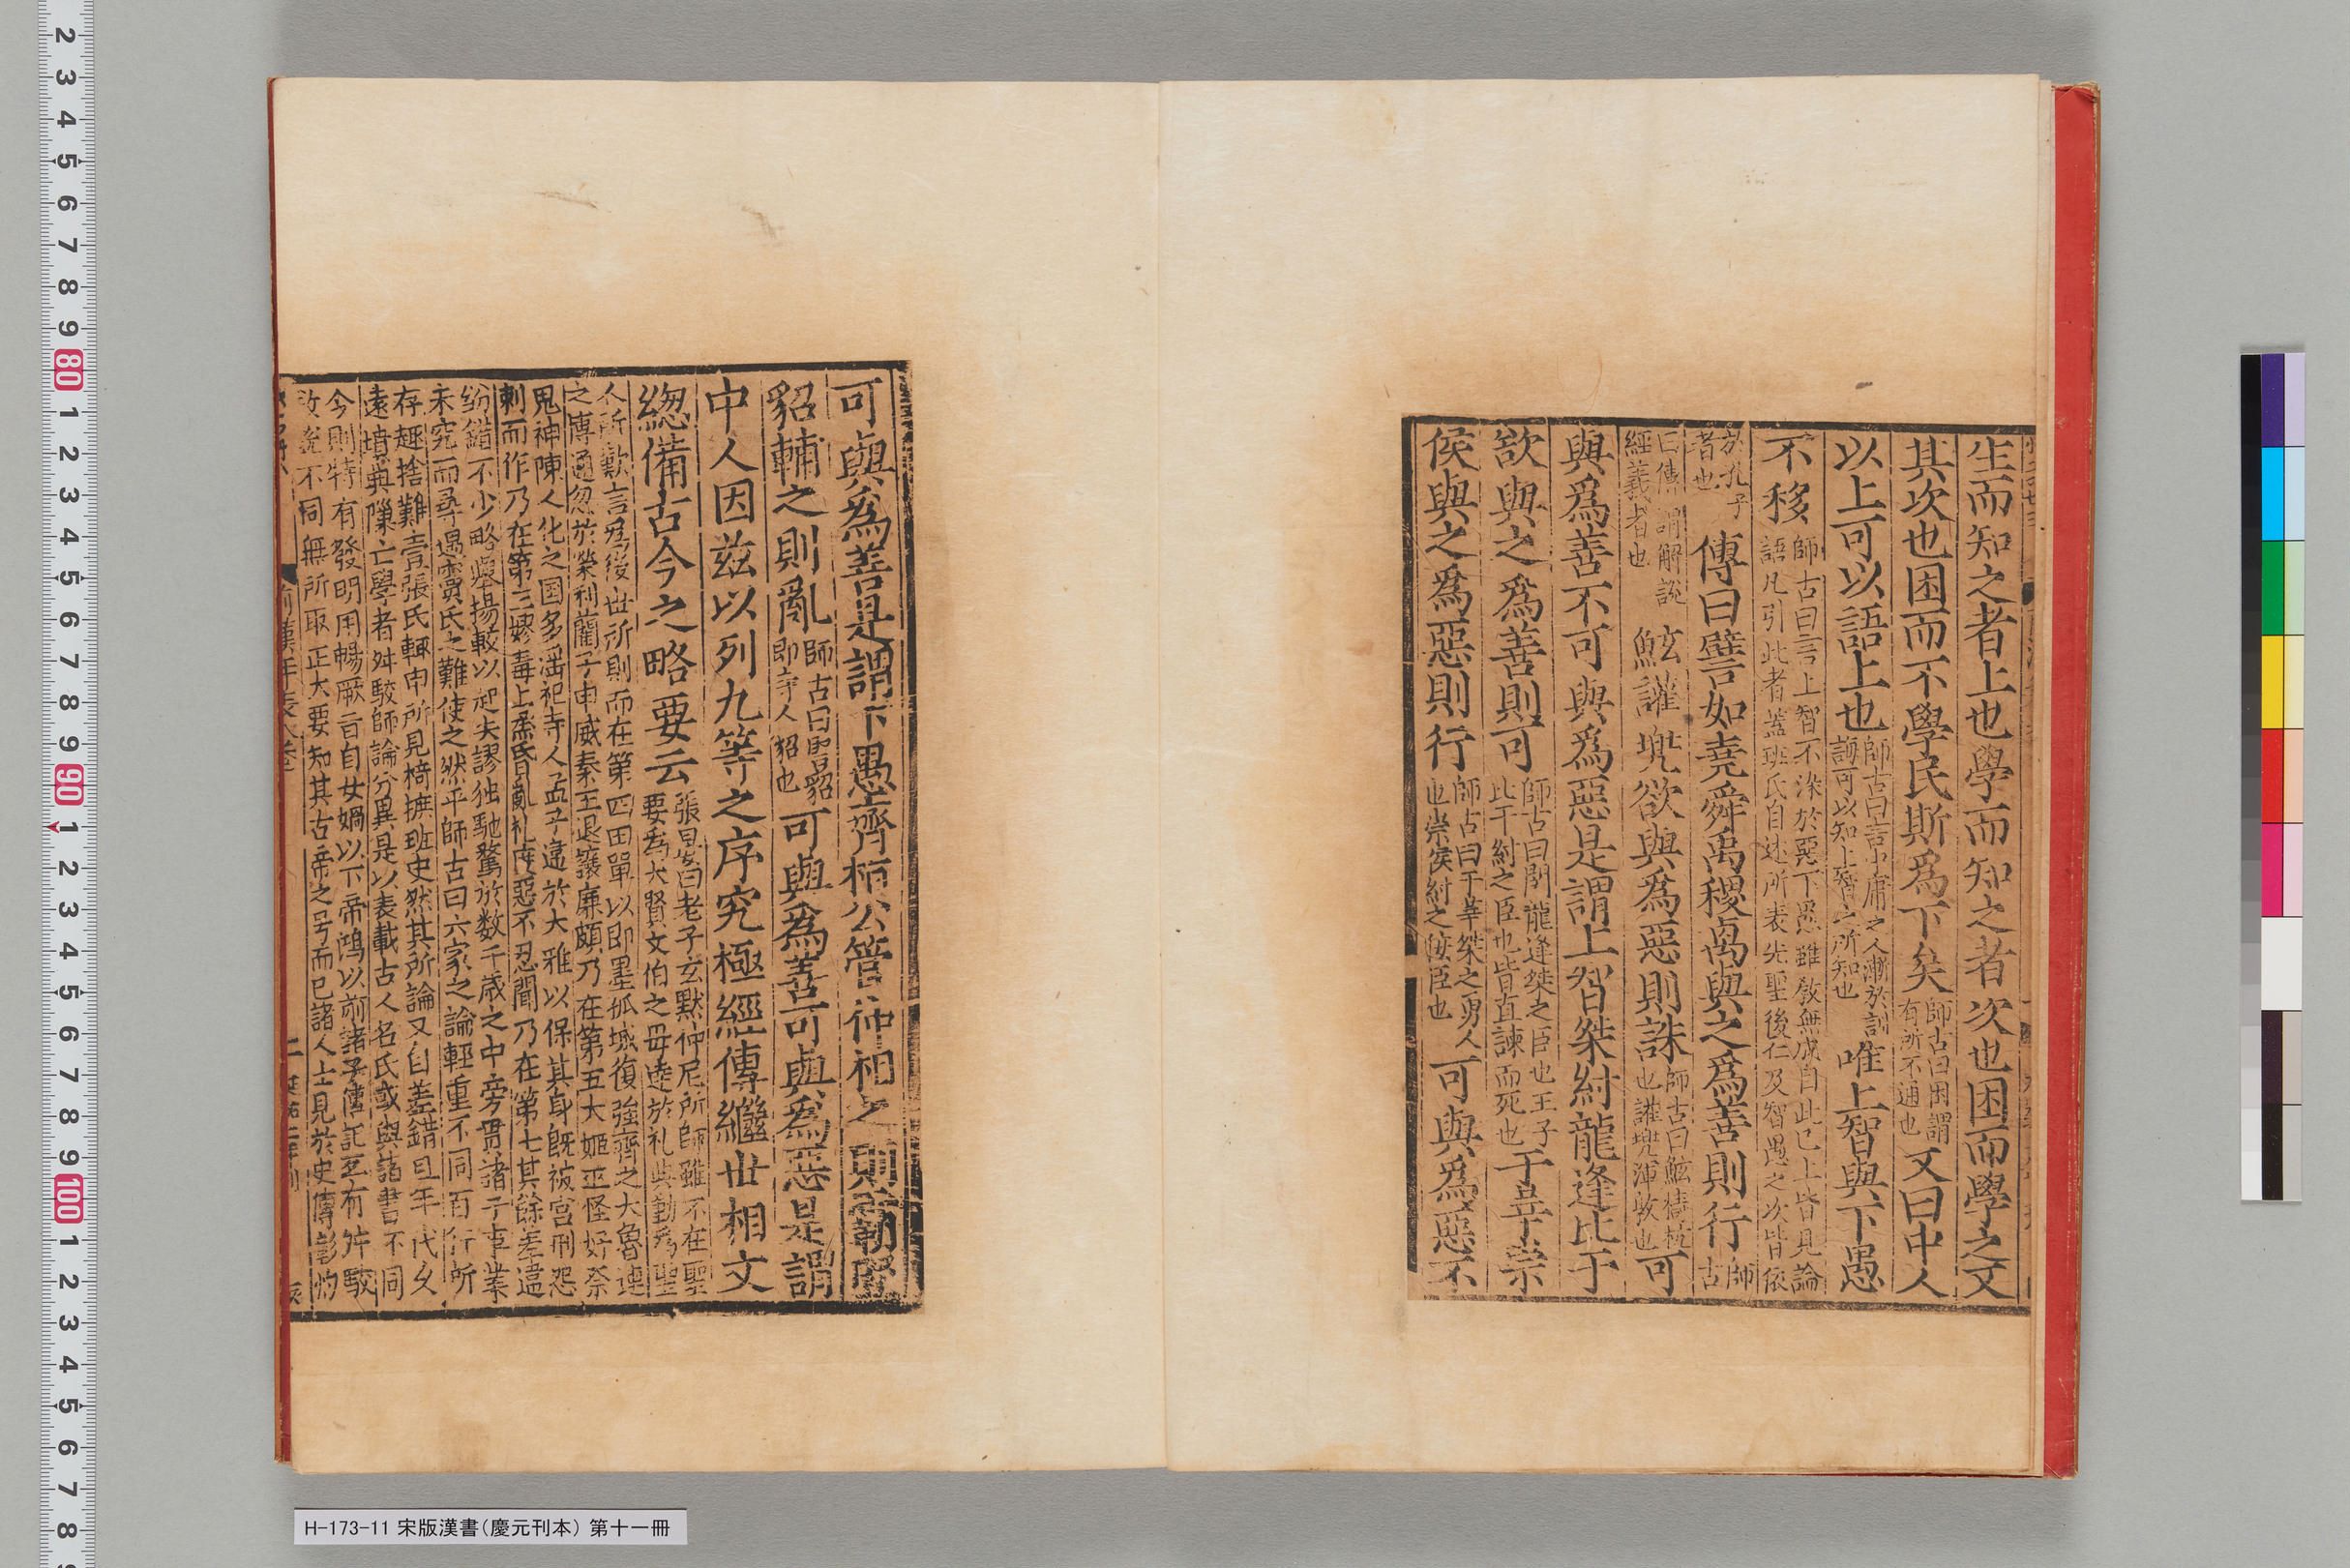 生而知之者上也學而知之者次也困而學之又
其次也困而不學民斯爲下矣師古曰困謂有所不通也又曰中人
以上可以語上也師古曰言中庸之人漸於訓誨可以知上智之所知也唯上智與下愚
不移師古曰言上智不染於惡下愚雖教無成自此已上皆見論語凡引此者蓋班氏自述所表先聖後仁及智愚之次皆依
於孔子者也傳曰譬如堯舜禹稷卨與之爲善則行師古
曰傳謂解說經義者也鮌讙兠欲與爲惡則誅師古曰鮌檮杌也讙兠渾敦也可
與爲善不可與爲惡是謂上智桀紂龍逢比干
欲與之爲善則可師古曰關龍逢桀之臣也王子比干紂之臣也皆直諫而死也于莘崇
侯與之爲惡則行師古曰于莘桀之勇人也崇侯紂之佞臣也可與爲惡不
可與爲善是謂下愚齊桓公管仲相之則霸豎
貂輔之則亂師古曰豎貂即寺人貂也可與爲善可與爲惡是謂
中人因茲以列九等之序究極經傳繼世相文
緫備古今之略要云張晏曰老子玄默仲尼所師雖不在聖要爲大賢文伯之母達於礼典動爲聖
人所歎言爲後世所則而在第四田單以即墨孤城復強齊之大魯連
之博通忽於榮利藺子申威秦王退讓廉頗乃在第五大姬巫怪好祭
鬼神陳人化之国多淫祀寺人孟子違於大雅以保其身既被宮刑怨
刺而作乃在第三嫪毒上烝昏亂礼度惡不忍聞乃在第七其餘差違
紛錯不少略舉揚較以起失謬独馳騖於数千歲之中旁貫諸子事業
未究而尋遇竇氏之難使之然乎師古曰六家之論輕重不同百行所
存趣捨難壹張氏輒申所見掎摭班史然其所論又自差錯且年代久
遠墳典隳亡學者舛駮師論分異是以表載古人名氏或與諸書不同
今則特有發明用暢厥旨自女媧以下帝鴻以前諸子傳記互有舛駮
敘說不同無所取正大要知其古帝之号而已諸人士見於史傳彰灼
前漢年表八卷
H-173-11 宋版漢書（慶元刊本） 第十一冊